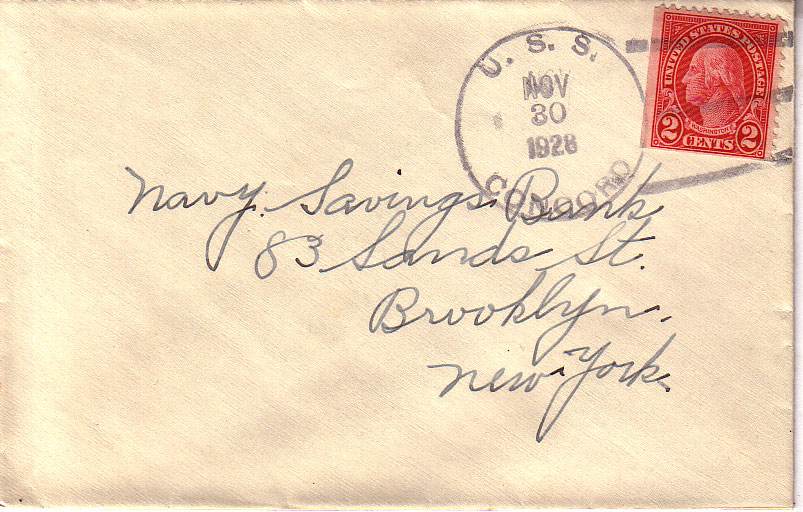 U. S. S.
NOV
30
1928
CONCORD
UNITED STATES POSTAGE
WASHINGTON
2 CENTS 2
Navy Savings Bank
83 Sands St.
Brooklyn,
New York.